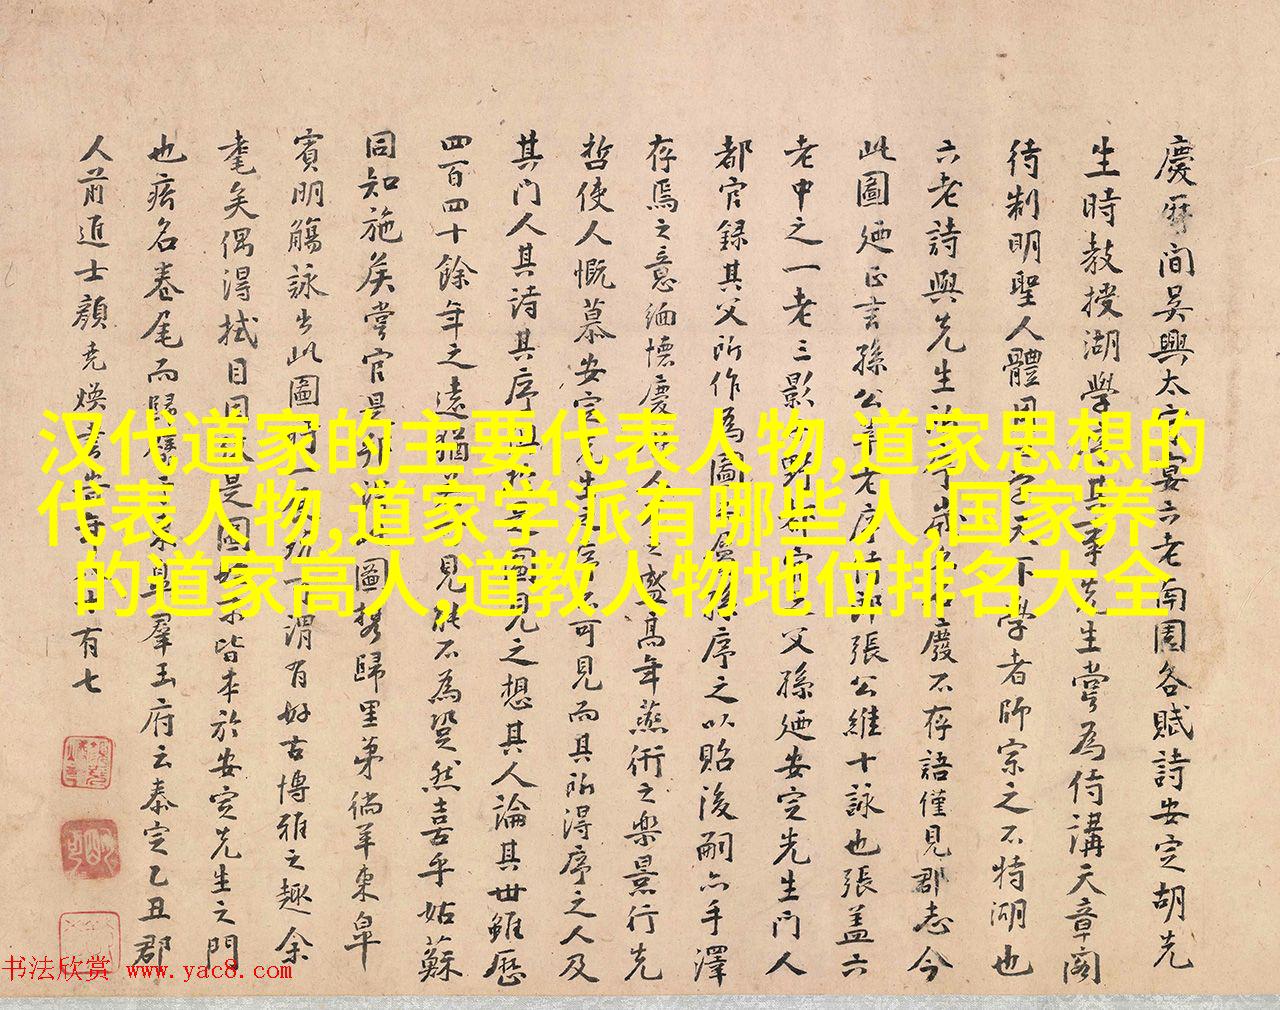 慶曆間吳興太守宴六老南園各賦詩安定胡先
生時教授湖學序其事先生嘗為侍講天章閣
待制明聖人體用天下學者師宗之不特湖也
六老詩與先生廢不存語僅見郡志今
此圖廼書孫公莘老序侍郎張公維十詠也張蓋六
老中之一老三影野都官之父孫廼安定先生門人
都官錄其父所作為圖孫序之以貽後嗣亦手澤
存焉之意緬懷慶人之盛高年燕衎之樂景行先
哲使人慨慕安定先生可見而其所得序之人及
其門人其詩其序圖見之想其人論其世雖歷
四百四十餘年之遠猶見能不為然喜乎姑蘇
同知施矦嘗官是圖携歸里第徜羊東皐
賓明觴詠出此圖謂有好古博雅之趣余
耄矣偶得拭目是圖皆本於安定先生之門
也名卷尾而歸羣玉府云泰定乙丑郡
人前進士顏堯煥書有七
汉代道家的主要代表人物,道家思想的
代表人物,道家学派有哪些人,国家养
的道家高人,道教人物地位排名大全
书法欣赏 www.yac8.com